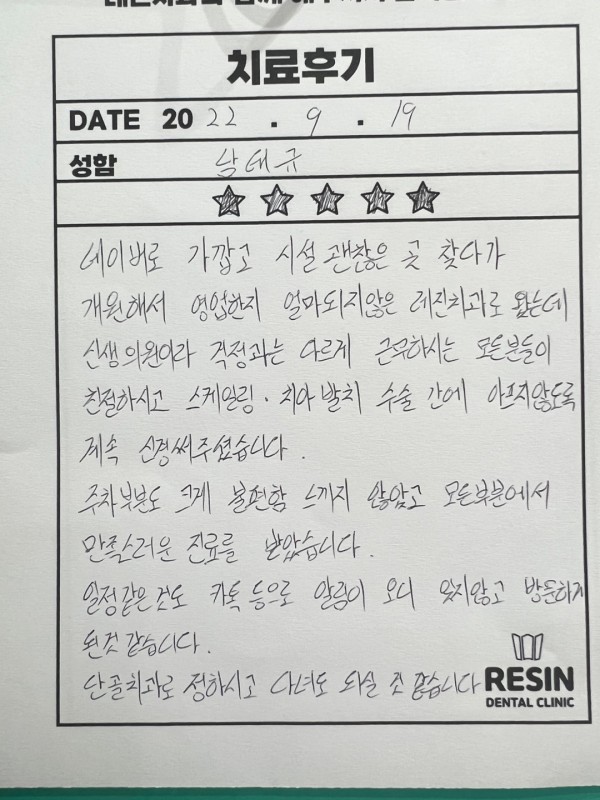 치료후기
DATE 20 22 . 9 . 19
성함 남대규
네이버로 가깝고 시설 괜찮은 곳 찾다가
개원해서 영업한지 얼마되지않은 레진치과로 왔는데
신생의원이라 걱정과는 다르게 근무하시는 모든분들이
친절하시고 스케일링 · 치아 발치 수술 간에 아프지않도록
계속 신경써주셨습니다.
주차부분도 크게 불편함 느끼지 않았고 모든부분에서
만족스러운 진료를 받았습니다.
일정같은것도 카톡 등으로 알림이 오니 잊지않고 방문하게
된것 같습니다.
단골치과로 정하시고 다녀도 되실 것 같습니다
RESIN
DENTAL CLINIC